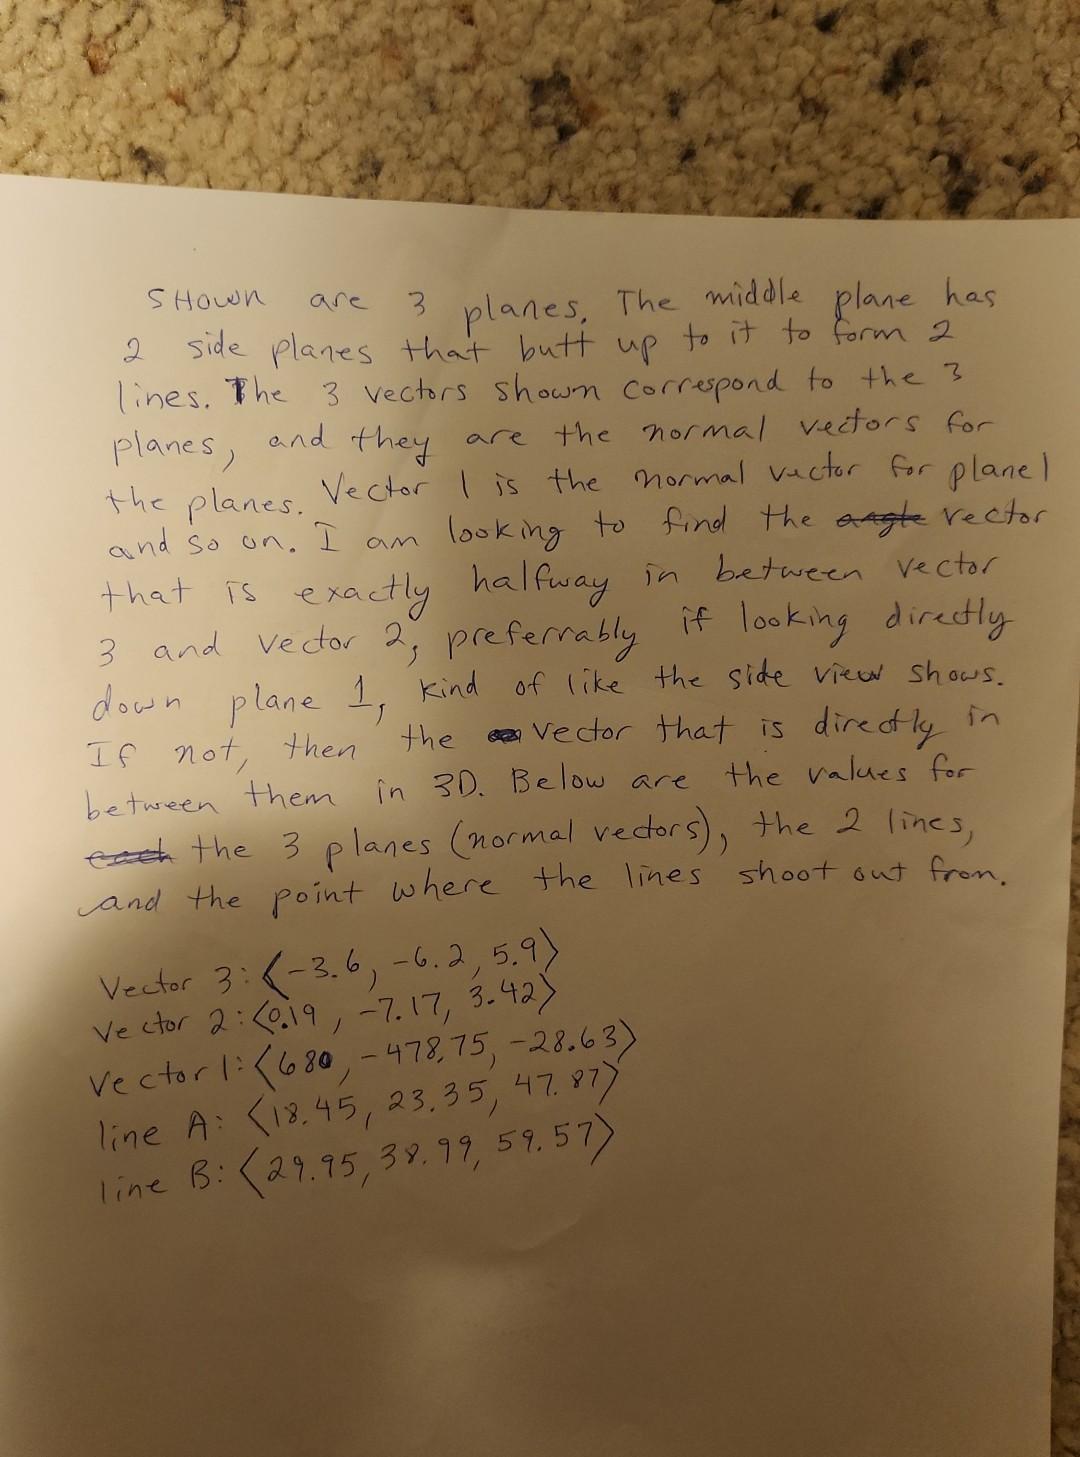 SHOWN are 3 planes. The middle plane has
2 side planes that butt up to it to form 2
lines. The 3 vectors shown correspond to the 3
planes, and they are the normal vectors for
the planes. Vector 1 is the normal vector for plane 1
and so on. I am looking to find the angle vector
that is exactly halfway in between vector
3 and vector 2, preferrably if looking directly
down plane 1, kind of like the side view shows.
If not, then the vector that is directly in
between them in 3D. Below are the values for
each the 3 planes (normal vectors), the 2 lines,
and the point where the lines shoot out from.
Vector 3: ⟨-3.6, -6.2, 5.9⟩
Vector 2: ⟨0.19, -7.17, 3.42⟩
Vector 1: ⟨680, -478.75, -28.63⟩
line A: ⟨18.45, 23.35, 47.87⟩
line B: ⟨29.95, 38.99, 59.57⟩